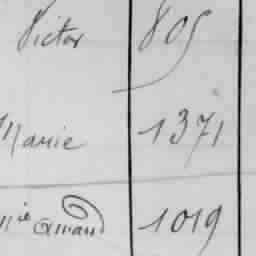 Victor 805
Marie 1371
Mie Amand 1019